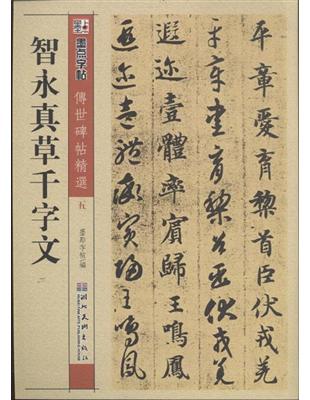 平章愛育黎首臣伏戎羌
平章愛育黎首臣伏戎羌
遐迩壹體率賓歸王鳴鳳
遐迩壹體率賓歸王鳴鳳
墨點字帖
傳世碑帖精選 五
墨點字帖編
湖北美术出版社
智永真草千字文